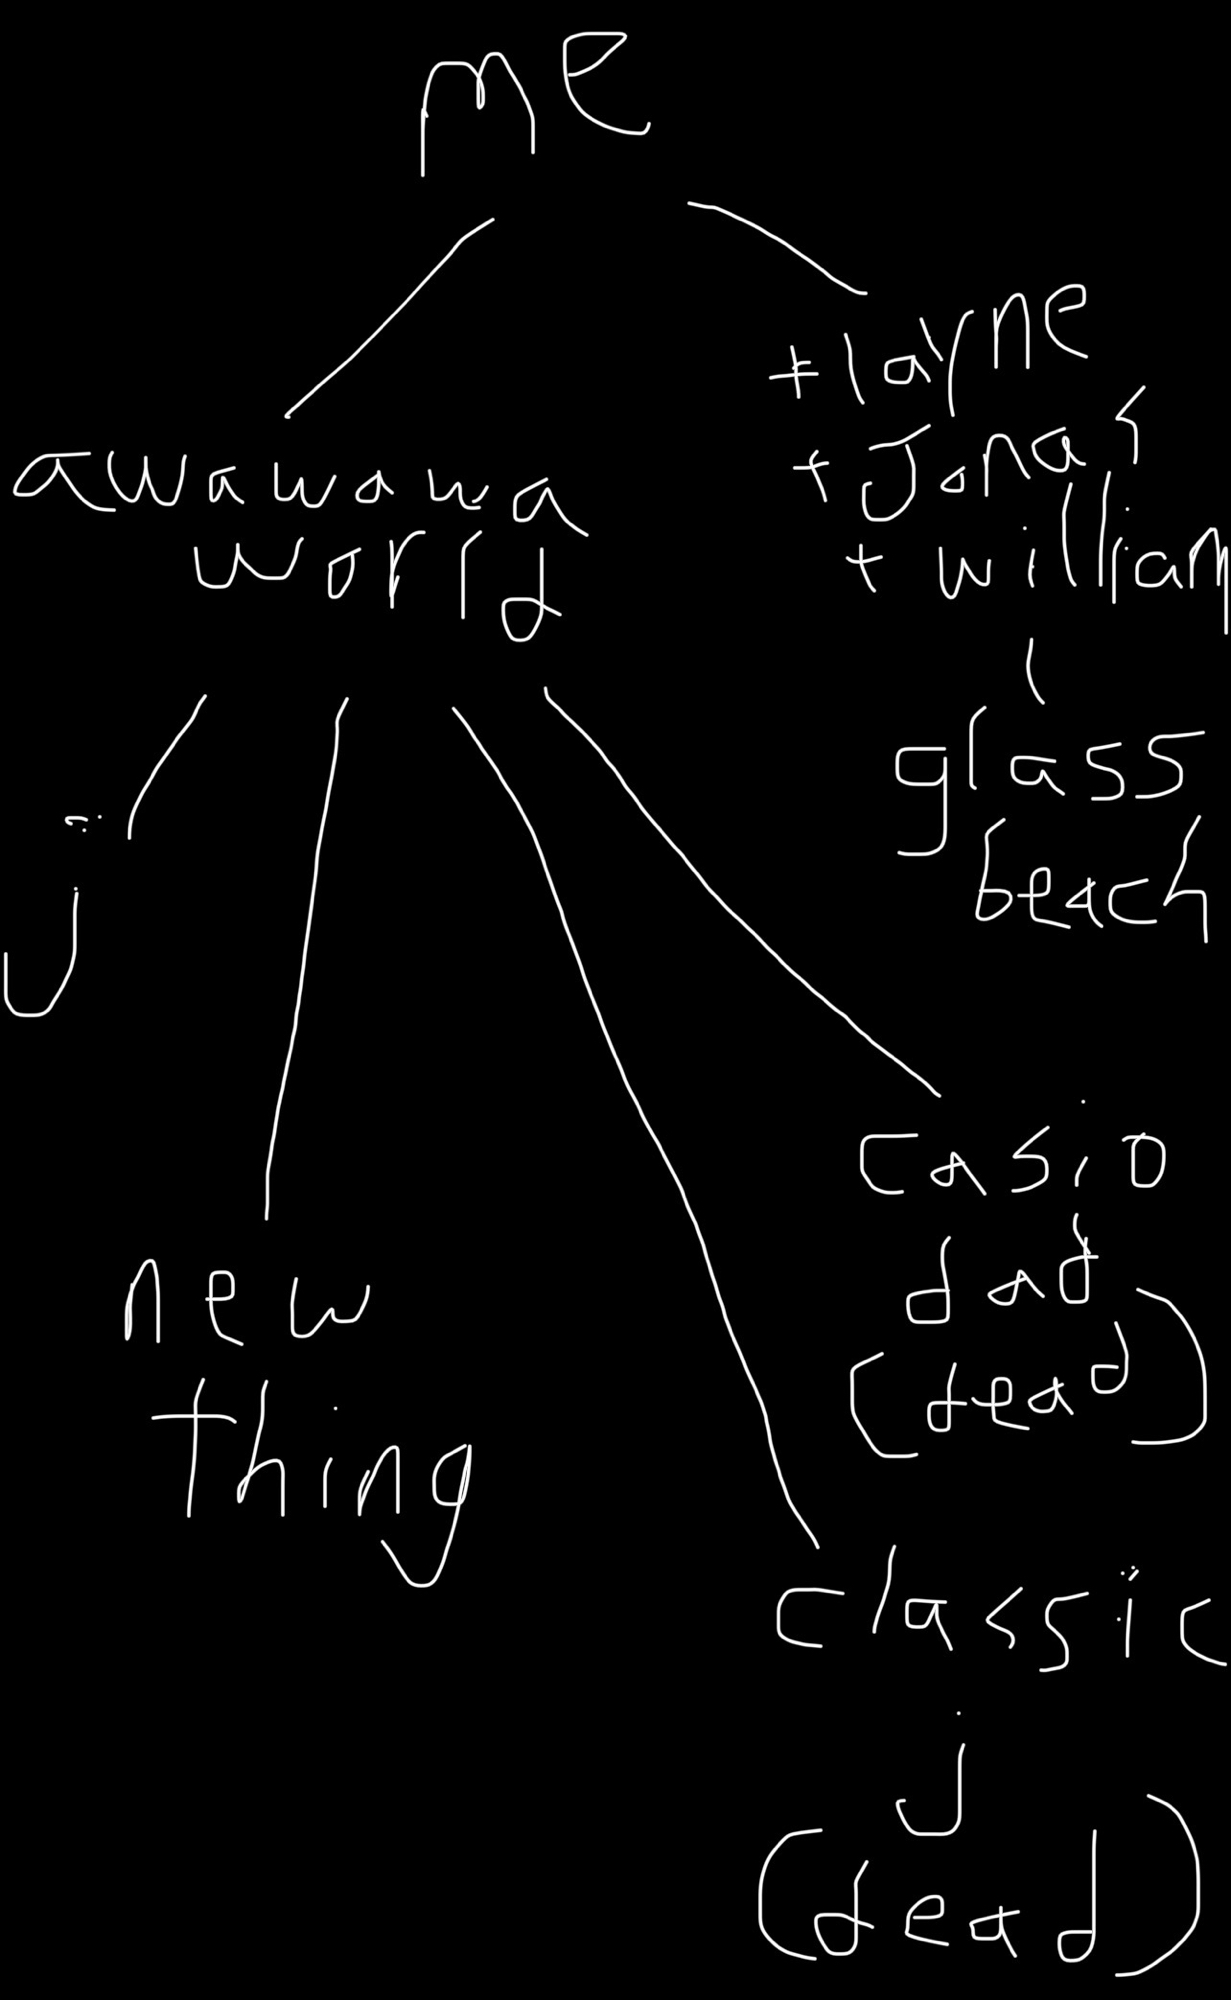 me
+ layne
+ Jonas
+ william
awawawa
world
glass
beach
j
casio
dad
(dead)
new
thing
classic
j
(dead)